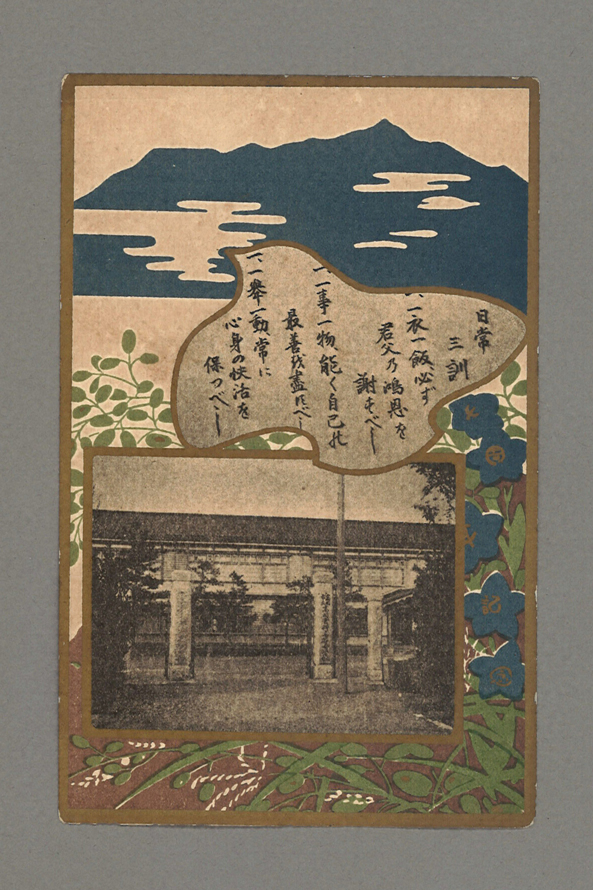 日常
三訓
一、一衣一飯、必ず
君父乃鴻恩を
謝すべし
一、一事一物、能く自己の
最善を盡すべし
一、一擧一動、常に
心身の快活を
保つべし